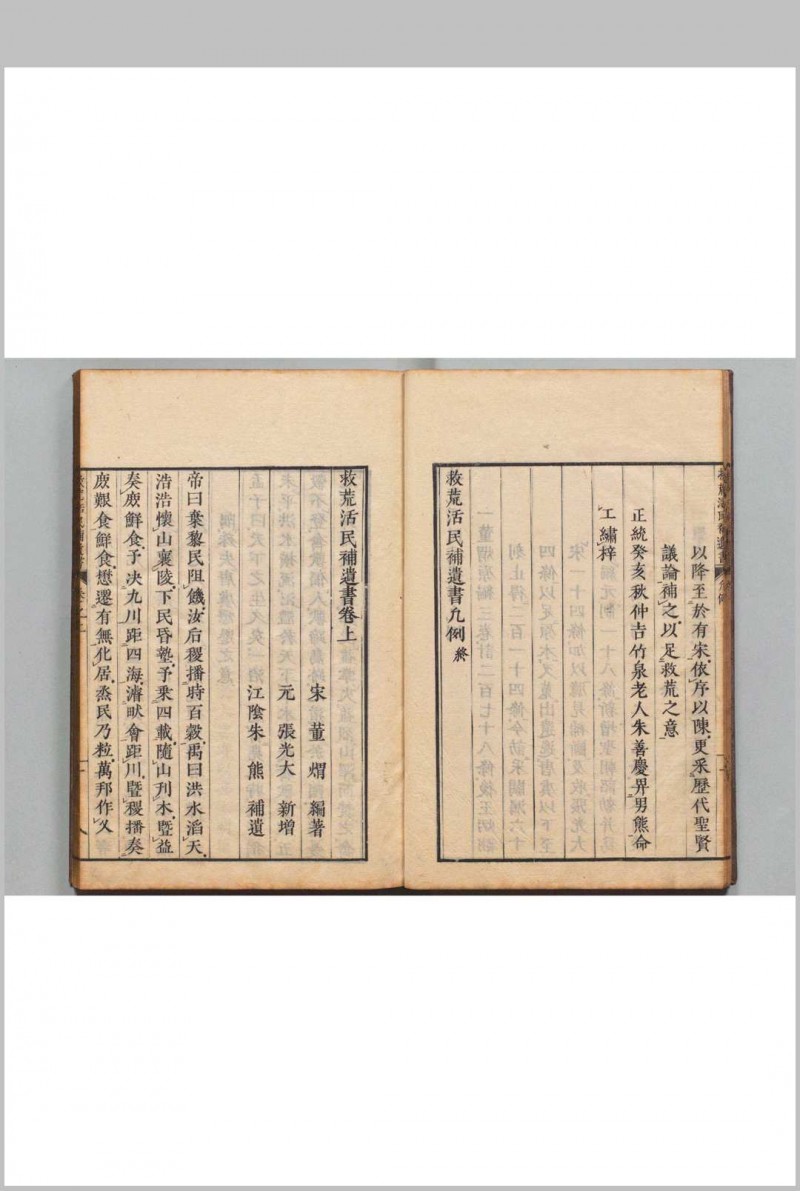 以降至於有宋依序以陳更采歷代聖賢
議論補之以足救荒之意
正統癸亥秋仲吉竹泉老人朱善慶畀男熊命
工繡梓
救荒活民補遺書凡例終
救荒活民補遺書卷上
宋 董煟 編著
元 張光大 新增
江陰朱 熊 補遺
帝曰棄黎民阻饑汝后稷播時百穀禹曰洪水滔天
浩浩懷山襄陵下民昏墊予乗四載隨山刋木暨益
奏庶鮮食予决九川距四海濬畎澮距川暨稷播奏
庶艱食鮮食懋遷有無化居烝民乃粒萬邦作乂